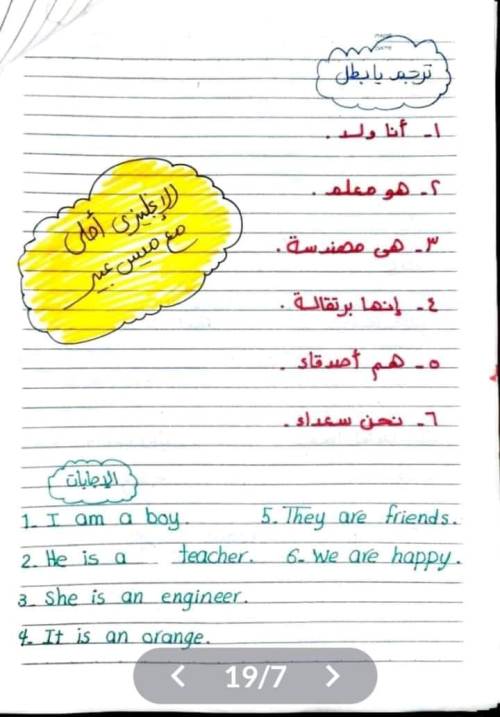 ترجم يا بطل
١- أنا ولد .
٢- هو معلم .
٣- هى مهندسة .
٤- إنها برتقالة .
٥- هم أصدقاء .
٦- نحن سعداء .
الإنجليزى أحلى
مع ميس عبير
الإجابات
1. I am a boy.
2. He is a teacher.
3. She is an engineer.
4. It is an orange.
5. They are friends.
6. We are happy.
19/7